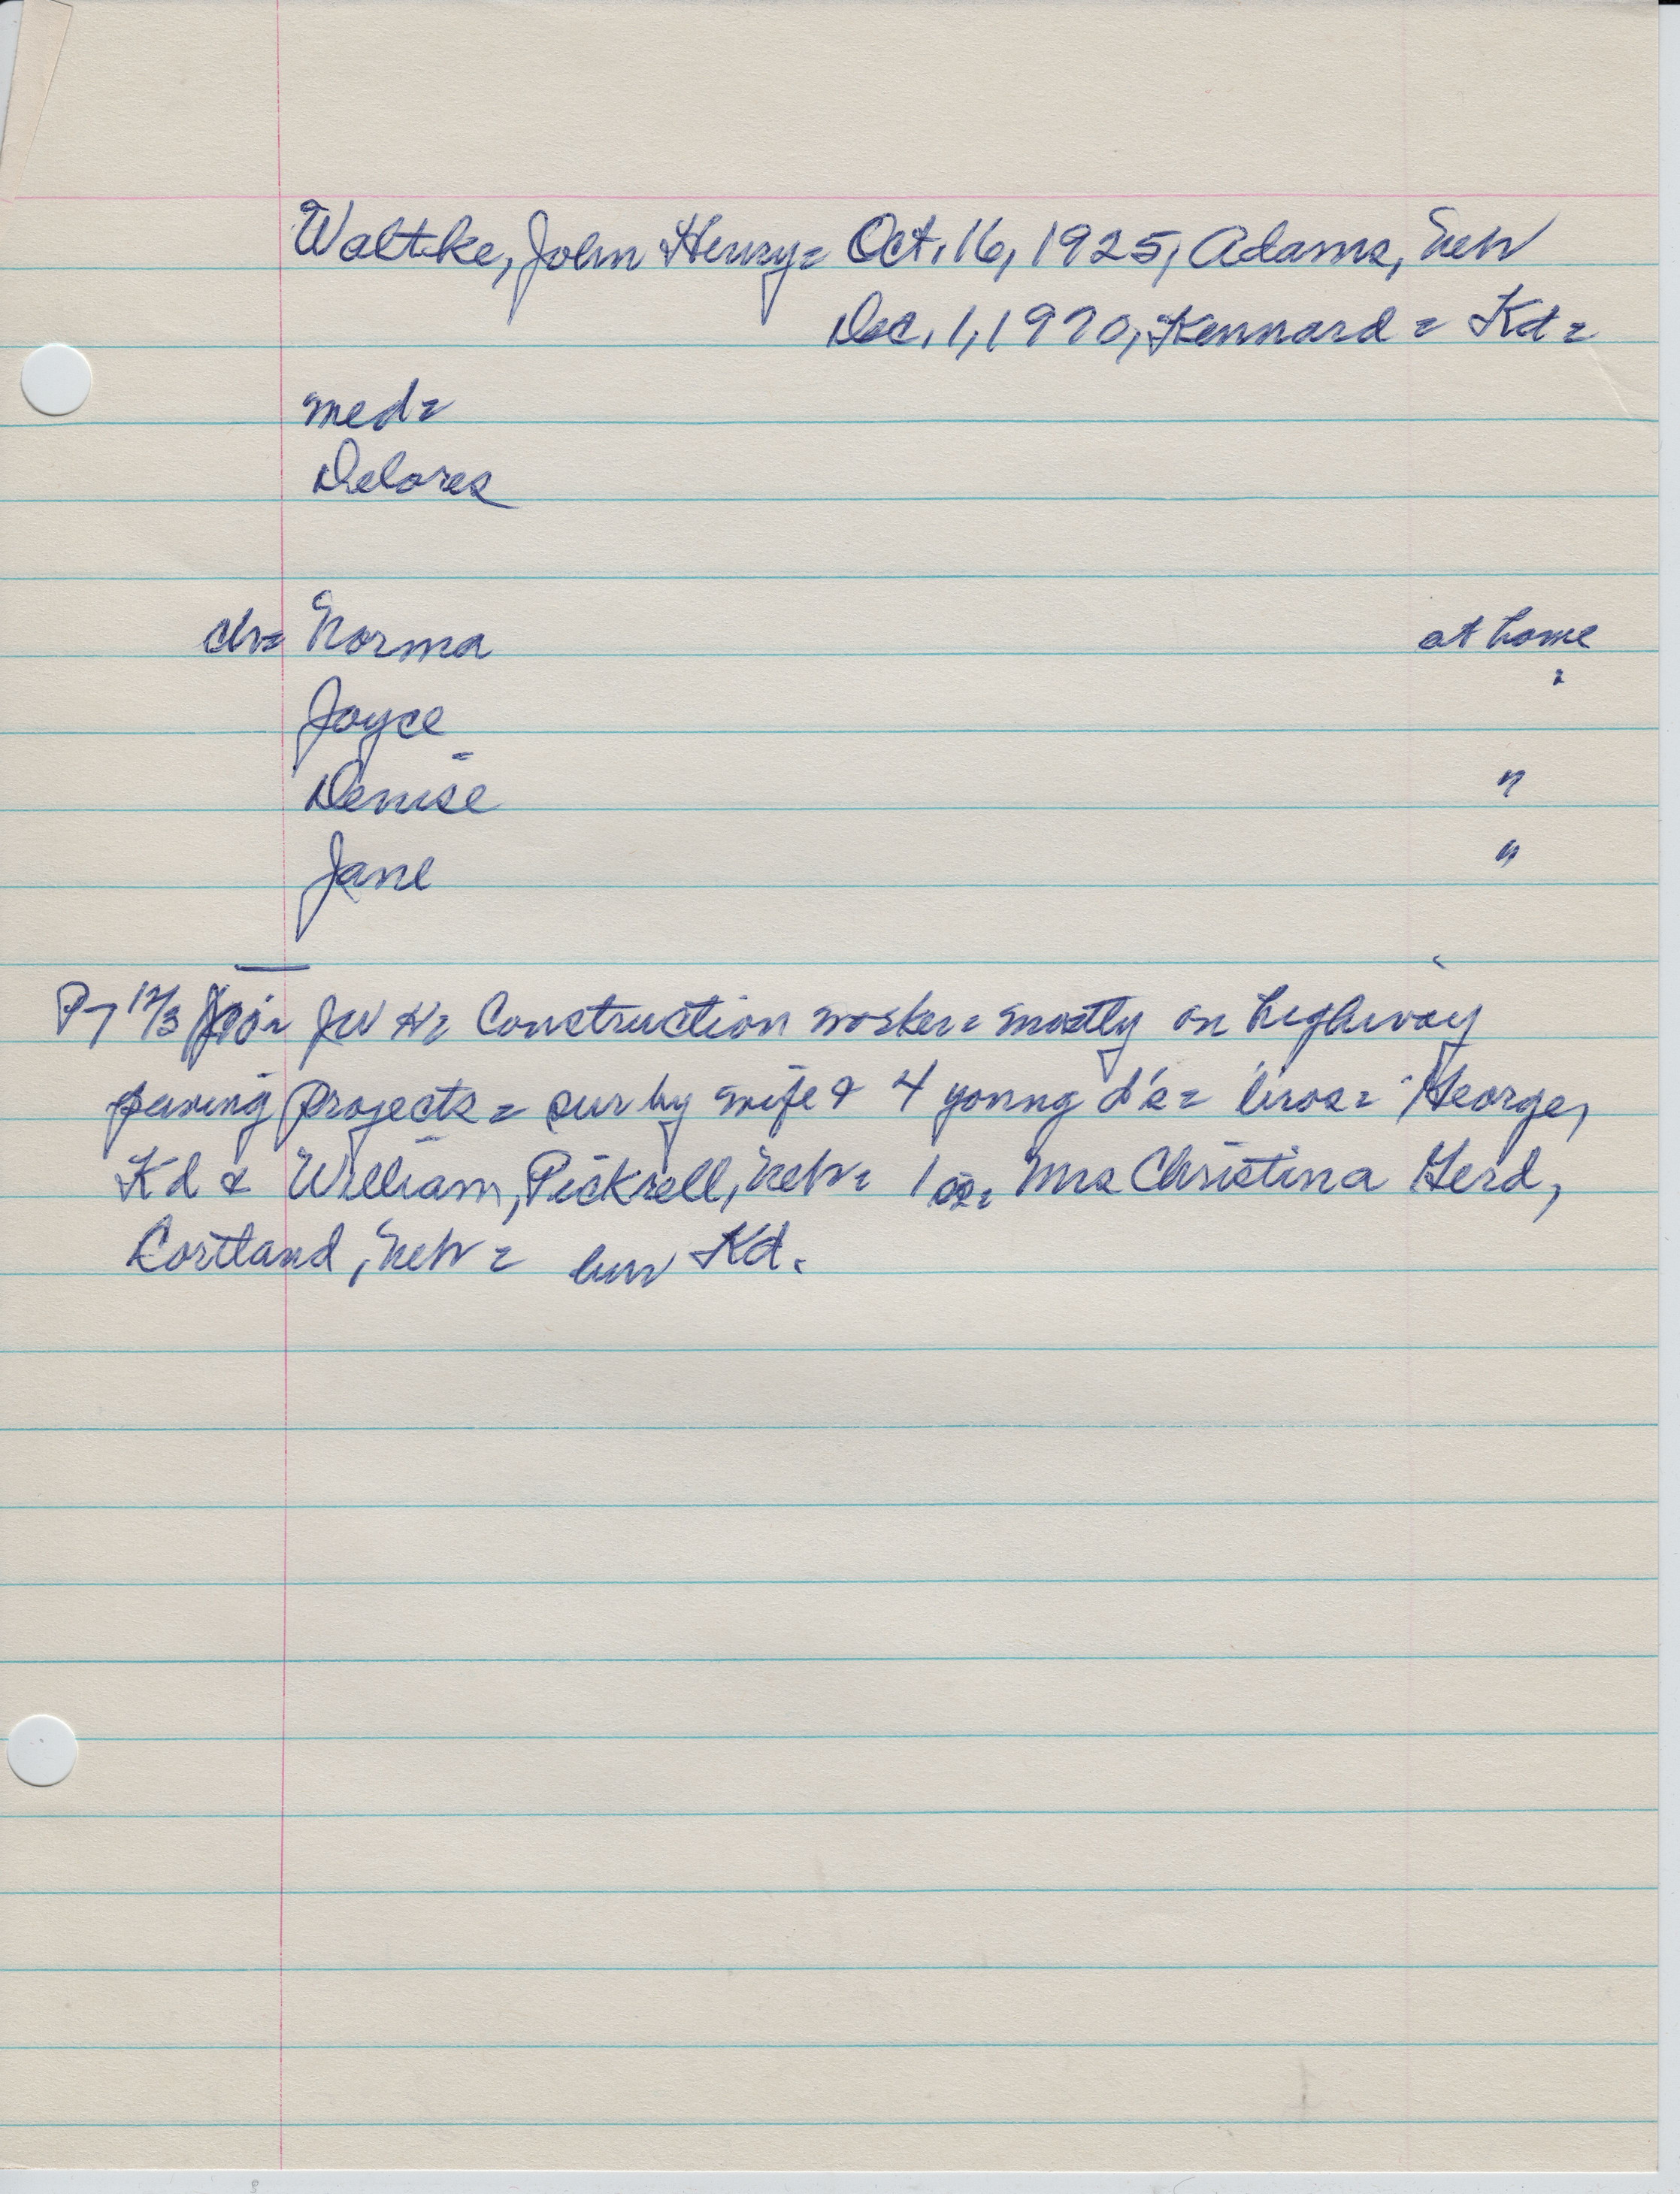 Waltke, John Henry = Oct. 16, 1925, Adams, Neb
Dec. 1, 1970, Kennard = Kd =
med =
Delores
ch = Norma at home
Joyce "
Denise "
Jane "
P7 12/3 JWH = Construction worker = mostly on highway
paving projects = sur by wife & 4 young d's = bros = George,
Kd & William, Pickrell, Neb = 1 ss. Mrs Christina Gerd,
Cortland, Neb = bur Kd.